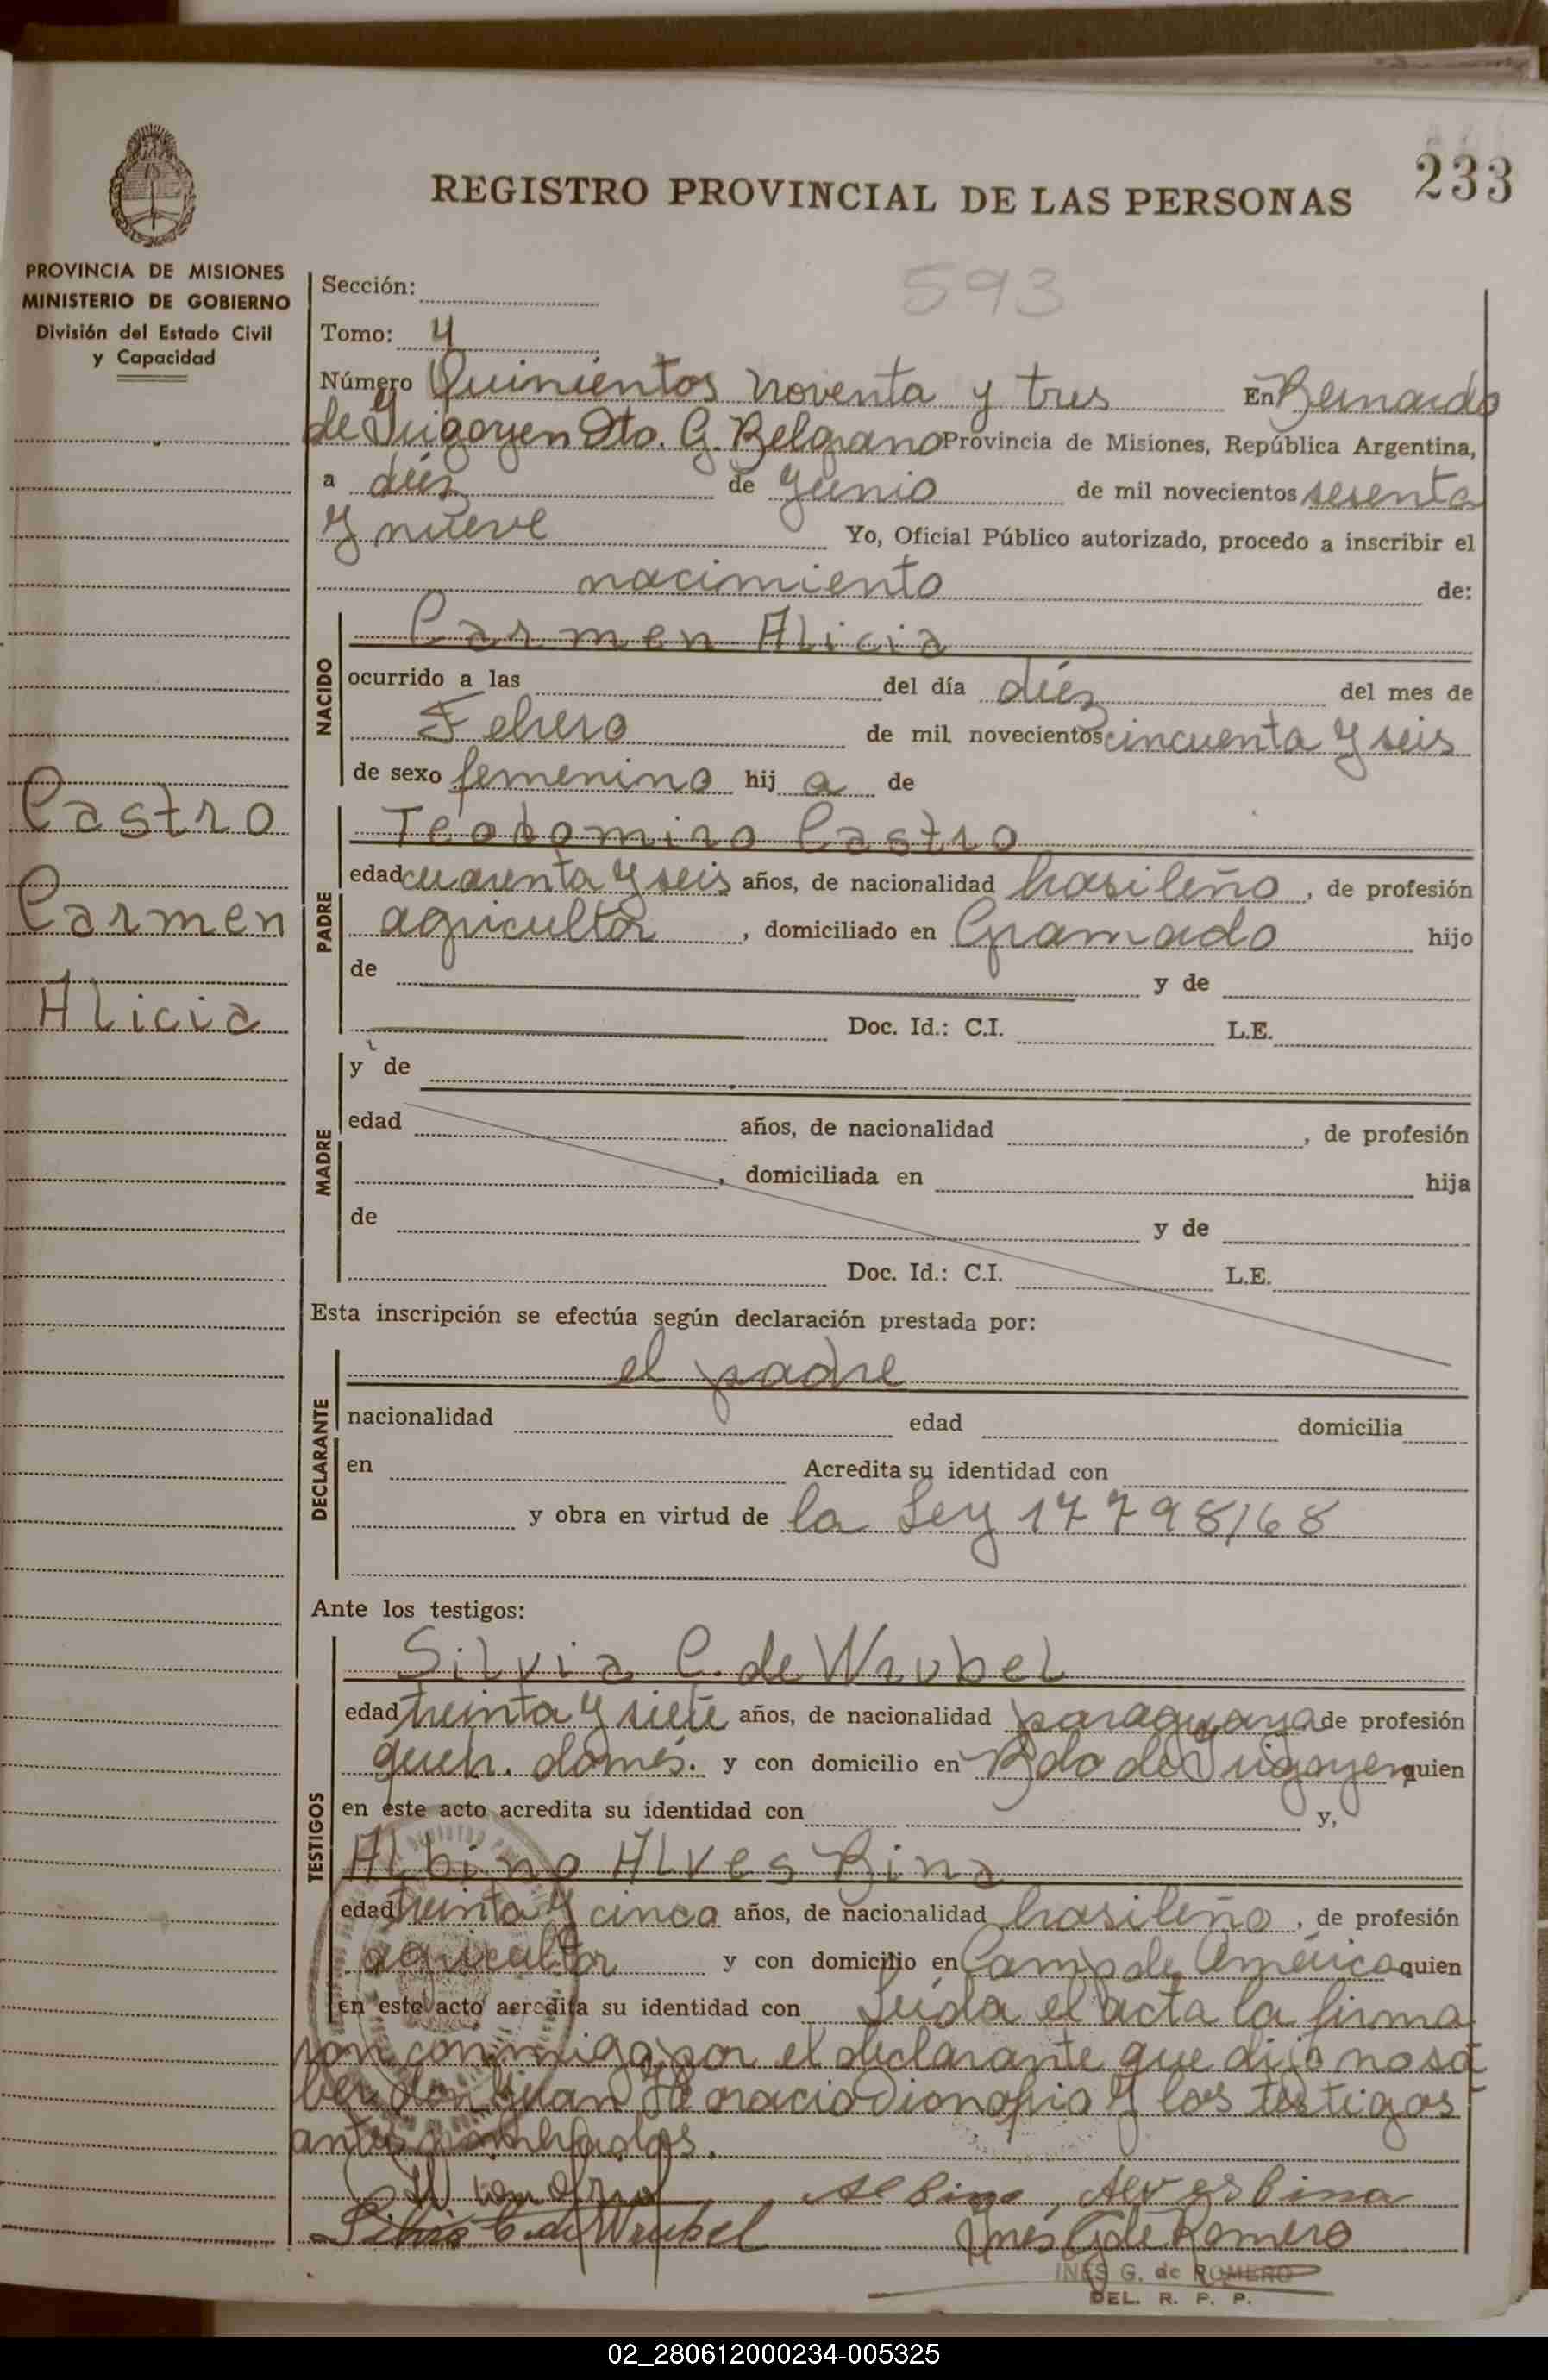 233
REGISTRO PROVINCIAL DE LAS PERSONAS
PROVINCIA DE MISIONES
MINISTERIO DE GOBIERNO
División del Estado Civil
y Capacidad
593
Sección:
Tomo: 4
Número Quinientos noventa y tres En Bernardo
de Irigoyen Dto. G. Belgrano Provincia de Misiones, República Argentina,
a diéz de Junio de mil novecientos sesenta
y nueve Yo, Oficial Público autorizado, procedo a inscribir el
nacimiento de:
Castro
Carmen
Alicia
NACIDO
Carmen Alicia
ocurrido a las del día diéz del mes de
Febrero de mil novecientos cincuenta y seis
de sexo femenino hij a de
PADRE
Teodomiro Castro
edad cuarenta y seis años, de nacionalidad brasileño, de profesión
agricultor, domiciliado en Gramado hijo
de y de
Doc. Id.: C.I. L.E.
MADRE
y de
edad años, de nacionalidad , de profesión
, domiciliada en hija
de y de
Doc. Id.: C.I. L.E.
Esta inscripción se efectúa según declaración prestada por:
DECLARANTE
el padre
nacionalidad edad domicilia
en Acredita su identidad con
y obra en virtud de la Ley 17798/68
Ante los testigos:
TESTIGOS
Silvia C. de Wrubel
edad treinta y siete años, de nacionalidad paraguaya de profesión
queh. domés. y con domicilio en Bdo de Irigoyen quien
en este acto acredita su identidad con y,
Albino Alves Bina
edad treinta y cinco años, de nacionalidad brasileño, de profesión
agricultor y con domicilio en Camp de América quien
en este acto acredita su identidad con Leida el acta la firma
ron conmigo por el declarante que dijo no sa
ber don Juan Dionofrio y los testigos
antes nombrados.
Albino Alves bina
Silvia C. de Wrubel Inés G de Romero
INES G. de ROMERO
DEL. R. P. P.
02_280612000234-005325